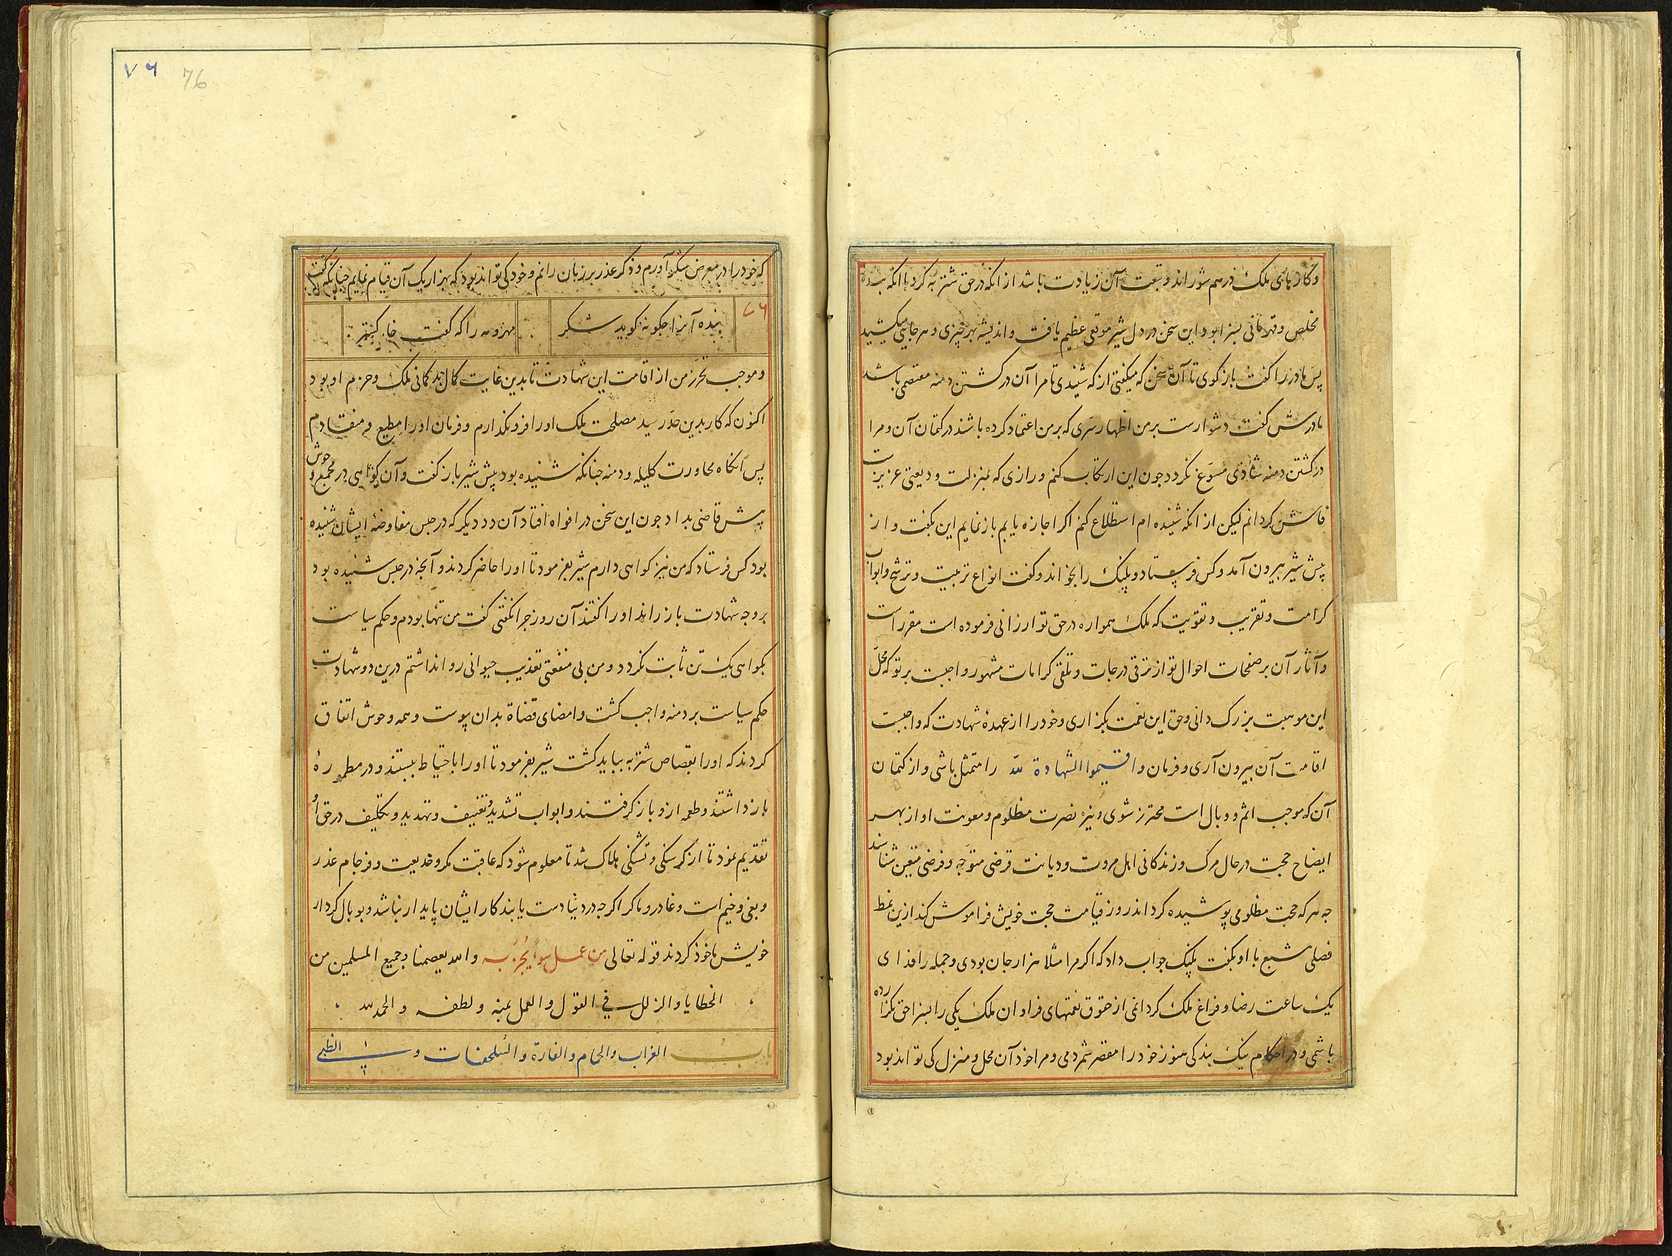 و کارهای ملک درهم شوراند و تبعت آن زیادت باشد از انکه در حق شتربه کرد با انکه بنده
مخلص و قهرمانی بسزا بود این سخن در دل شیر موقعی عظیم یافت و اندیشه بهر چیزی و هر جایی میکشید
پس مادر را گفت بازگوی تا آن سخن که میگفتی از که شنیدی تا مرا آن در کشتن دمنه مقتضی باشد
مادرش گفت دشوارست بر من اظهار سری که بر من اعتماد کرده باشند در کتمان آن و مرا
در کشتن دمنه شادی مسوغ نکردد چون این ارتکاب کنم و رازی که بمنزلت ودیعتی عزیزست
فاش کردانم لیکن از انکه شنیده ام استطلاع کنم اکر اجازه یابم باز نمایم این بگفت و از
پیش شیر بیرون آمد و کس فرستاد و پلنک را بخواند و گفت انواع تربیت و ترشیح و ابواب
کرامت و تقریب و تقویت که ملک همواره در حق تو ارزانی فرموده است مقررات
و آثار آن بر صفحات احوال تو از ترقی درجات و تلقی کرامات مشهور واجبست بر تو که محل
این موهبت بزرک دانی و حق این نعمت بگزاری و خود را از عهدۀ شهادت که واجبست
اقامت آن بیرون آری و فرمان واقیموا الشهادة لله را متمثل باشی و از کتمان
آن که موجب اثم و وبال است محترز شوی و نیز نصرت مظلوم و معونت او از بهر
ایضاح حجت در حال مرک و زندکانی اهل مروت و دیانت قرضی متوجه و فرضی متعین شناسند
چه هر که حجت مظلومی پوشیده کرداند روز قیامت حجت خویش فراموش کند ازین نمط
فصلی مشبع با او بگفت پلنک جواب داد که اکر مرا مثلا هزار جان بودی و جمله را فدای
یک ساعت رضا و فراغ ملک کردانمی از حقوق نعمتهای فراوان ملک یکی را بسزا حق نگزارده
باشمی و در احکام نیک بندکی هنوز خود را مقصر شمردمی و مرا خود آن محل و منزل کی تواند بود
۷۶ 76
که خود را در معرض شکر آورم و ذکر عذر بر زبان رانم و خود کی تواند بود که بهزار یک آن قیام نمایم چنانکه گفت
۷۶
بنده آنرا چکونه کوید شکر مهر و مه را که گفت خاکستر
و موجب تحرز من از اقامت این شهادت تا بدین غایت کمال بدکمانی ملک و حزم او بود
اکنون که کار بدین حد رسید مصلحت ملک او را فرو نگذارم و فرمان او را مطیع و منقادم
پس آنگاه محاورت کلیله و دمنه چنانکه شنیده بود پیش شیر باز گفت و آن گواهی در مجمع وحوش
پیش قاضی بداد چون این سخن در افواه افتاد آن دد دیگر که در حبس مفاوضۀ ایشان شنیده
بود کس فرستاد که من نیز کواهی دارم شیر بفرمود تا او را حاضر کردند و آنچه در حبس شنیده بود
بر وجه شهادت باز راند او را گفتند آن روز چرا نگفتی گفت من تنها بودم و حکم سیاست
بکواهی یک تن ثابت نکردد و من بی منفعتی تعذیب حیوانی روا نداشتم درین دو شهادت
حکم سیاست بر دمنه واجب گشت و امضای قضاة بدان پیوست و همه وحوش اتفاق
کردند که او را بقصاص شتربه بباید کشت شیر بفرمود تا او را باحتیاط ببستند و در مطموره
بازداشتند و طعمه ازو باز کرفتند و ابواب تشدید و تعنیف و تهدید و تکلیف در حق او
تقدیم نمود تا از گرسنکی و تشنگی هلاک شد تا معلوم شود که عاقبت مکر و خدیعت و فرجام غدر
و بغی وخیم است و غادر و ماکر اگر چه در دنیا دست یابند کار ایشان پایدار نباشد و بوبال کردار
خویش ماخوذ کردند قوله تعالی من عمل سوء یجز به و الله یعصمنا و جمیع المسلمین من
الخطایا و الزلل فی القول و العمل بمنه و لطفه و الحمد لله
باب الغراب و الحمام و الفارة و السلحفات و الظبی